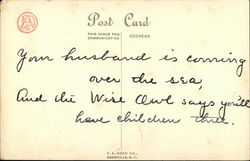 Post Card
THIS SPACE FOR
COMMUNICATION
ADDRESS
Your husband is coming
over the sea,
And the Wise Owl says you'll
have children three.
F. A. OWEN CO.,
DANSVILLE, N.Y.